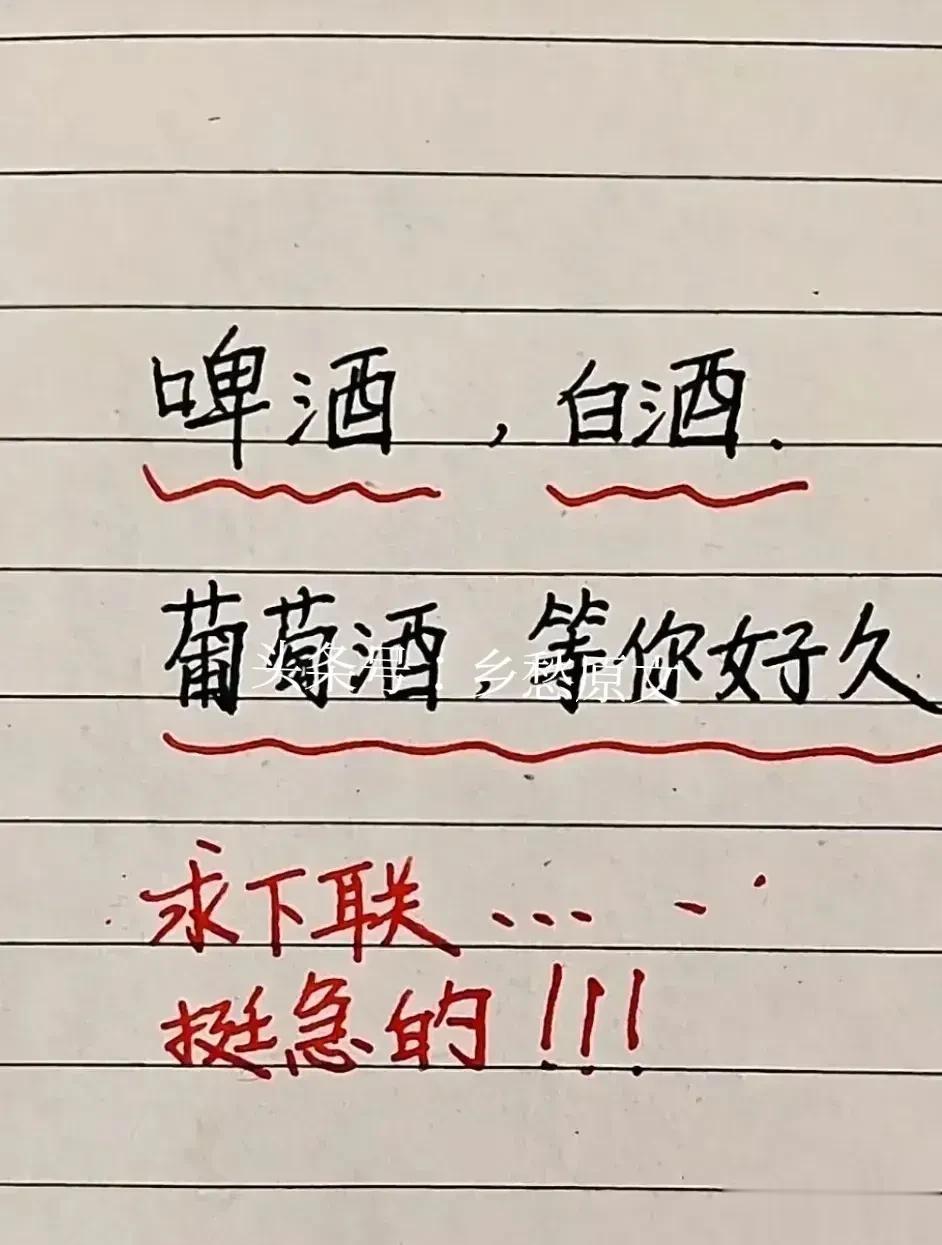 啤酒，白酒.
葡萄酒，等你好久
头条号 乡愁原文
求下联... - ·
挺急的!!!